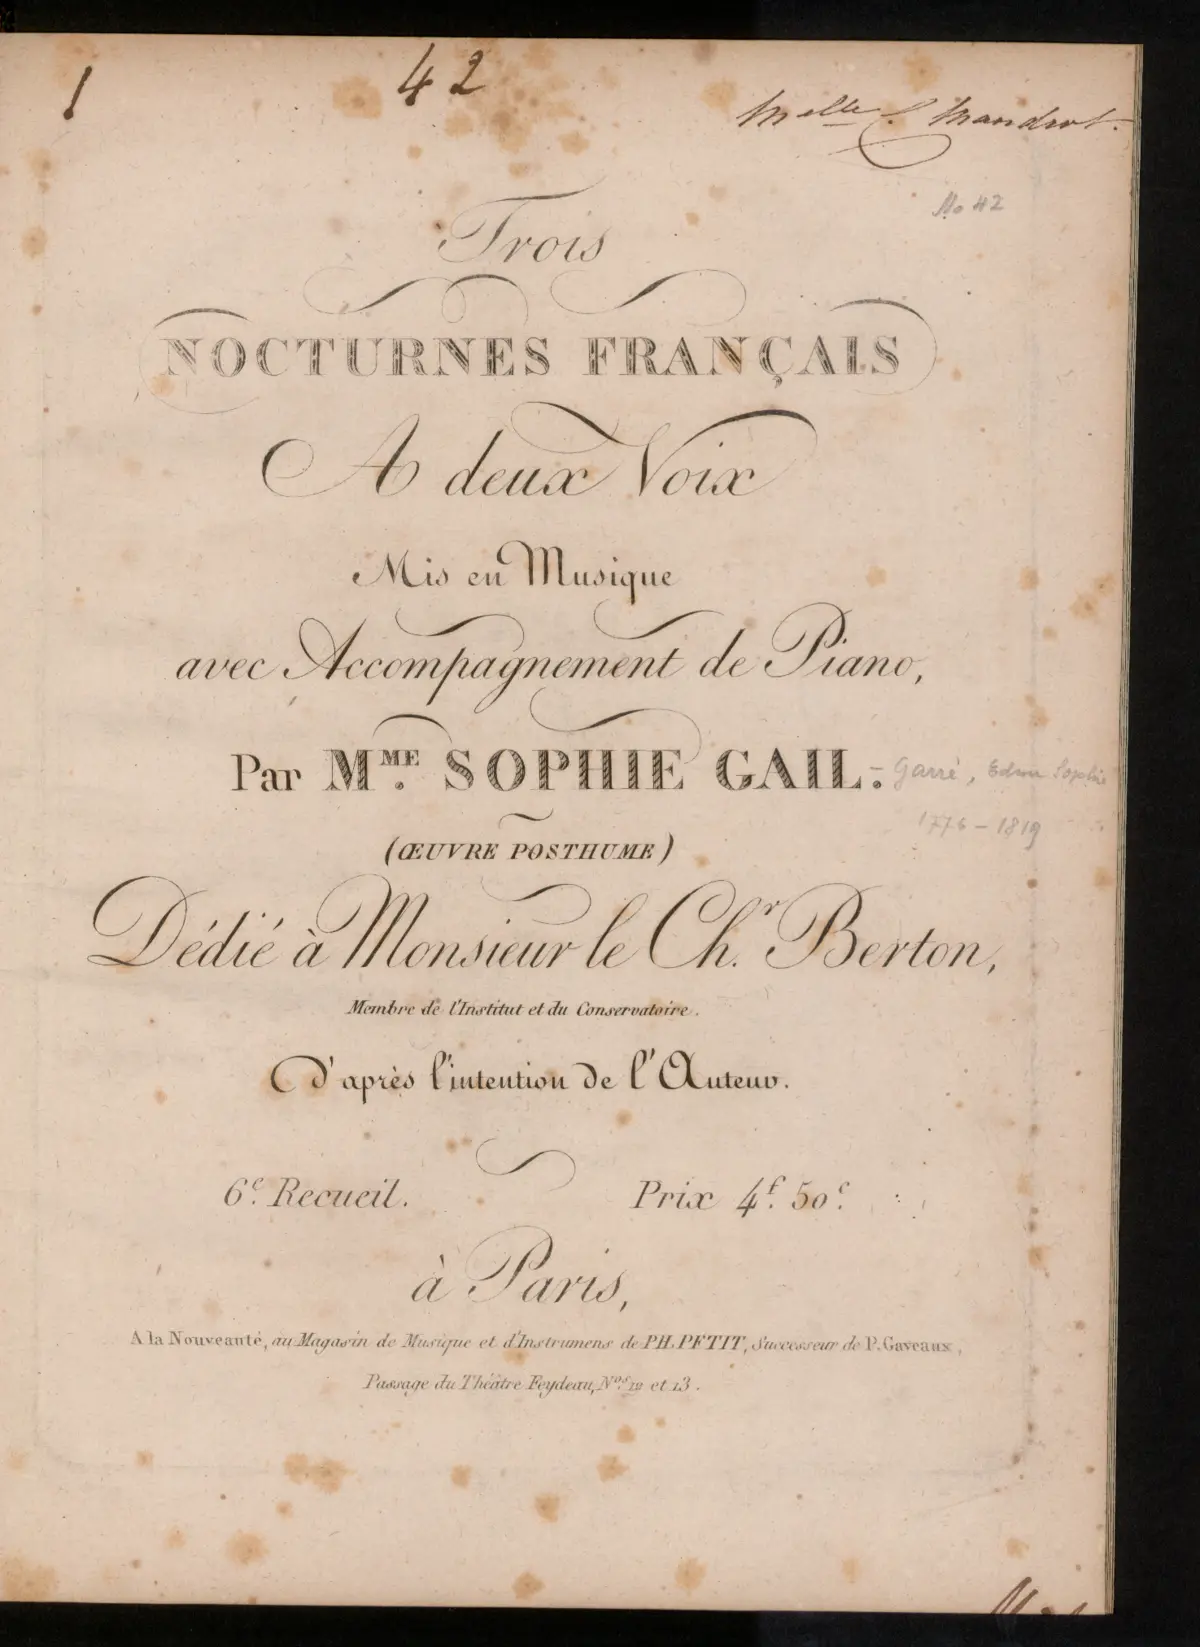 1
42
Melle S. Mandrot.
No 42
Trois
NOCTURNES FRANÇAIS
A deux Voix
Mis en Musique
avec Accompagnement de Piano,
Par MME. SOPHIE GAIL. - Garré, Edme Sophie
1776 - 1819
(ŒUVRE POSTHUME)
Dédié à Monsieur le Chr. Berton,
Membre de l'Institut et du Conservatoire.
D'après l'intention de l'Auteur.
6e. Recueil. Prix 4f. 50c.
à Paris,
A la Nouveauté, au Magasin de Musique et d'Instrumens de PH. PETIT, Successeur de P. Gaveaux,
Passage du Théâtre Feydeau, Nos. 12 et 13.